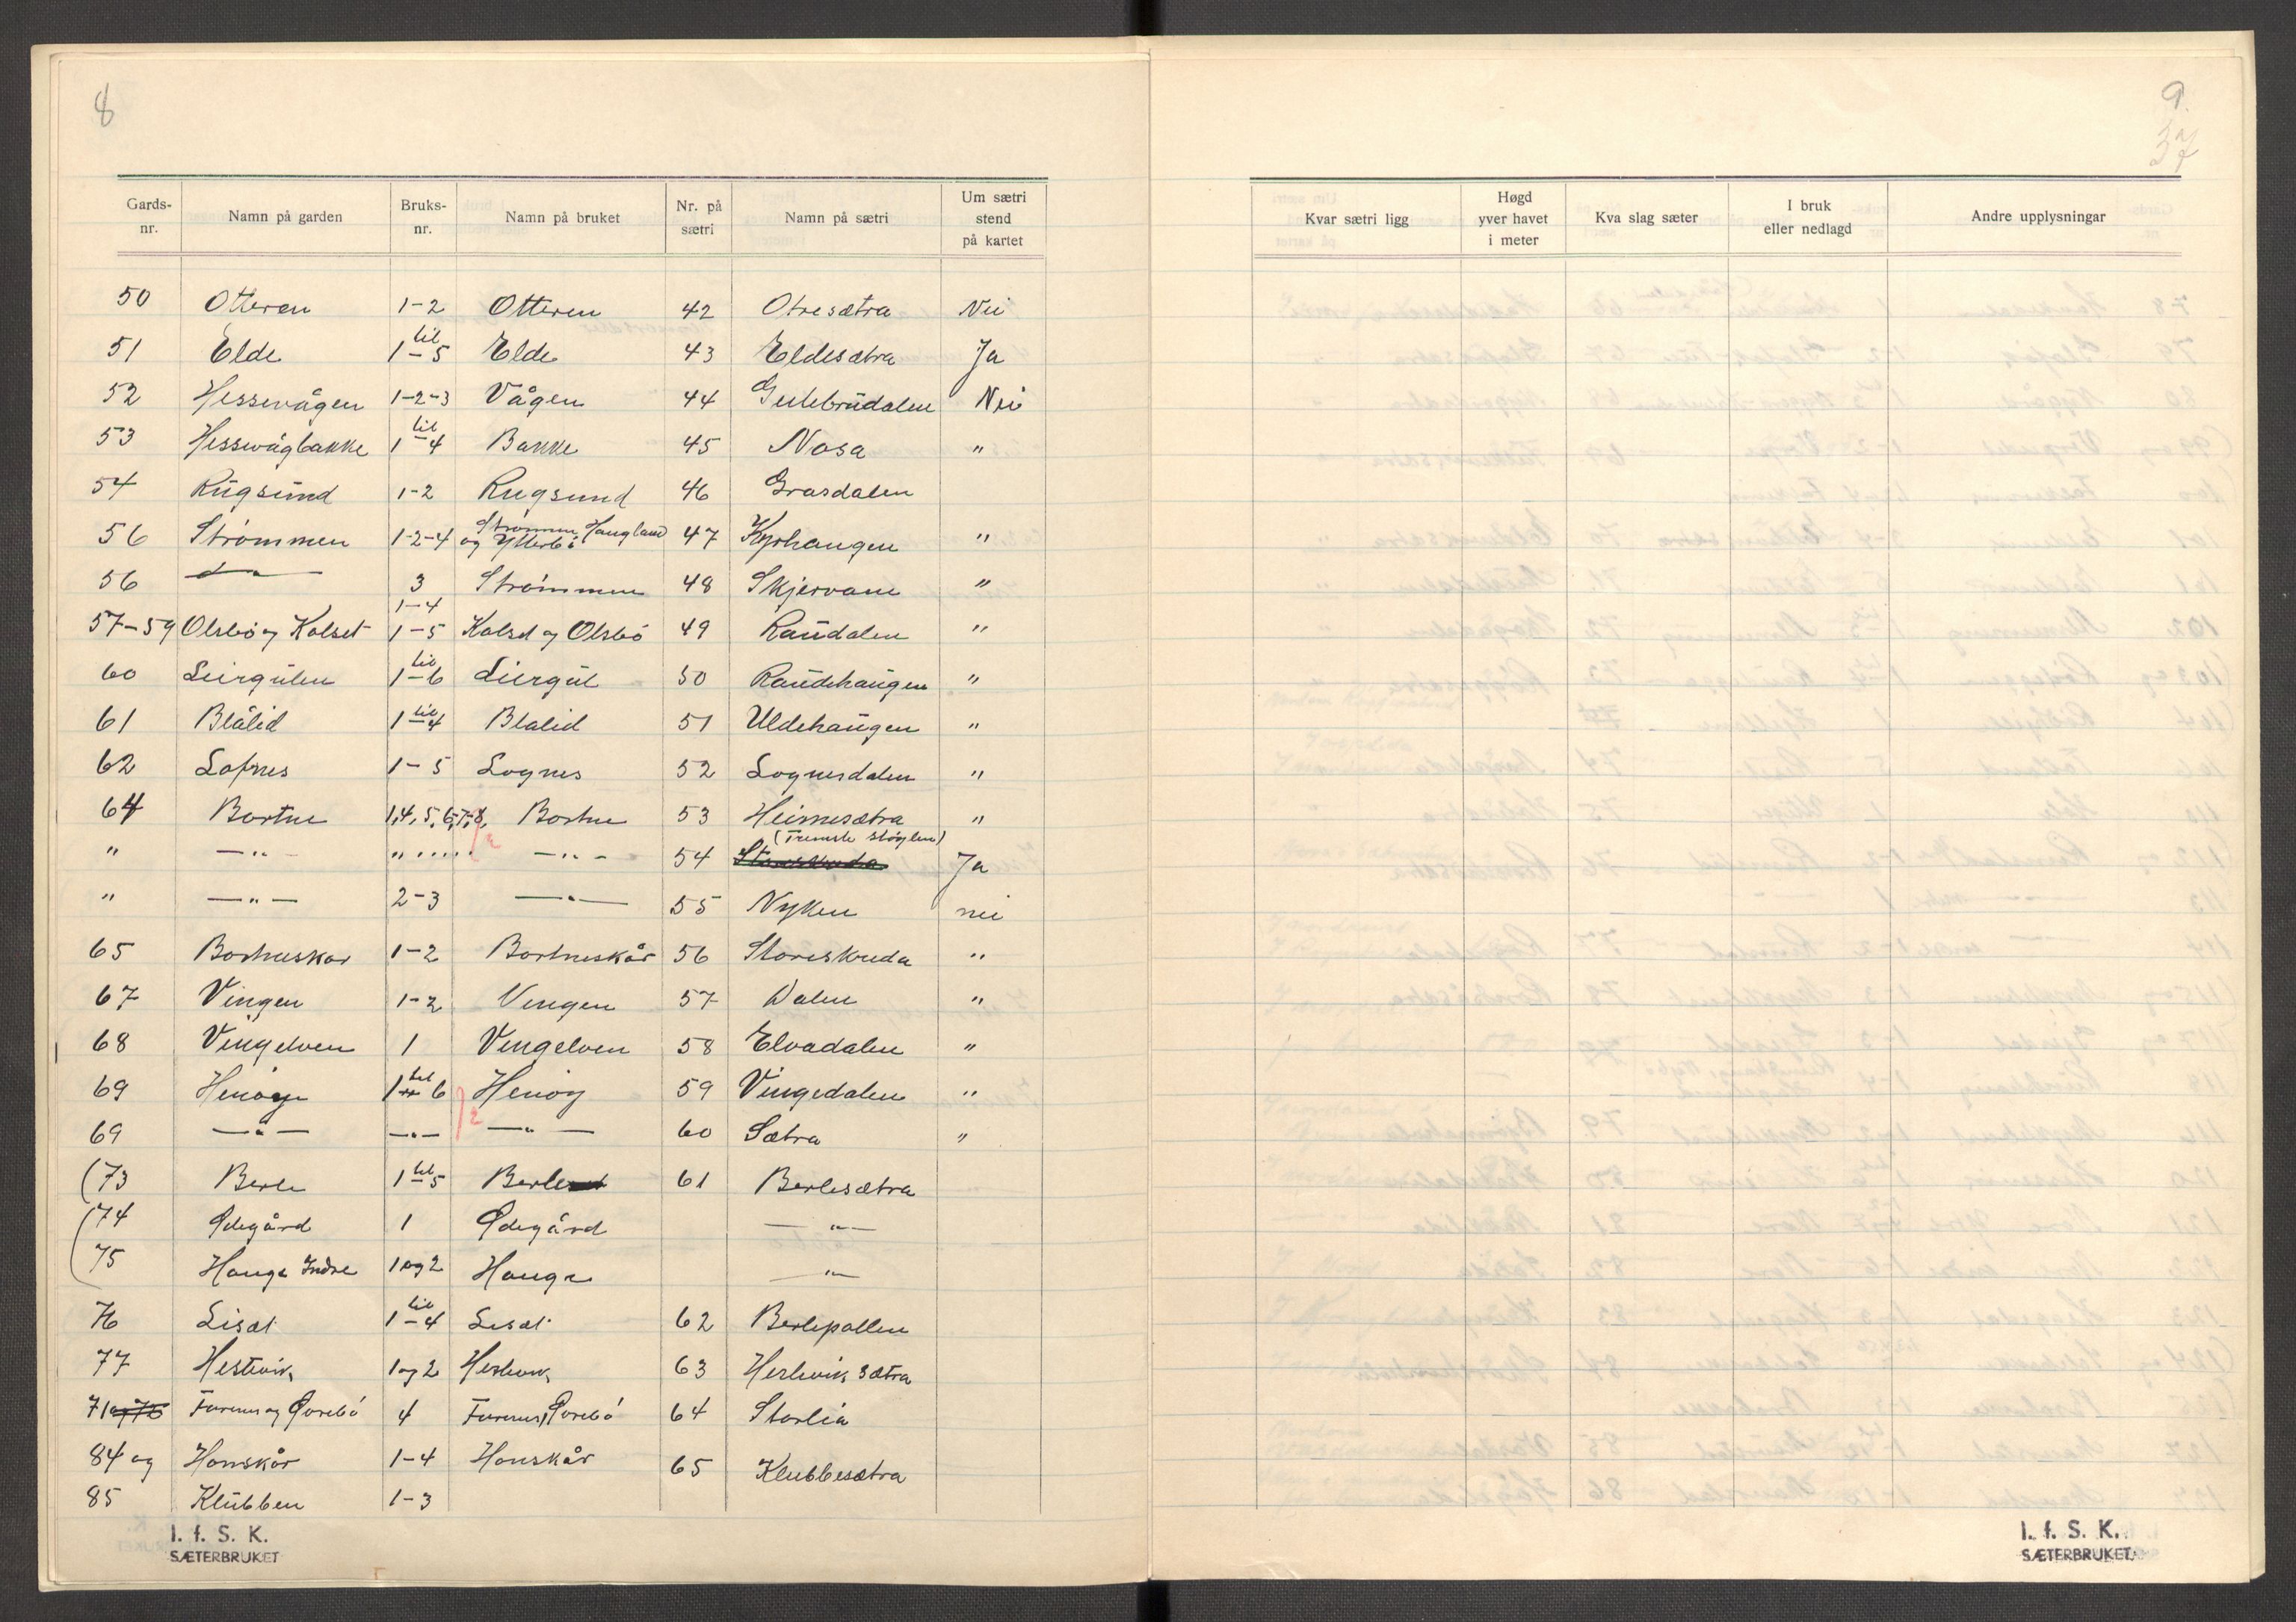 8
Gards-nr. Namn på garden Bruks-nr. Namn på bruket Nr. på sætri Namn på sætri Um sætri stend på kartet
50 Otteren 1-2 Otteren 42 Otresætra Nei
51 Elde 1 til 5 Elde 43 Eldesætra Ja
52 Hessevågen 1-2-3 Vågen 44 Gulebrudalen Nei
53 Hessevågbakke 1 til 4 Bakke 45 Nosa "
54 Rugsund 1-2 Rugsund 46 Grasdalen
56 Strømmen 1-2-4 Strømmen Haugland og Ytterbö 47 Kyrhaugen "
56 —"— 3 Strömmen 48 Skjervane "
57-59 Olsbö og Kolset 1-4 1-5 Kolset og Olsbö 49 Raudalen "
60 Leirgulen 1 til 6 Leirgul 50 Raudehaugen "
61 Blålid 1 til 4 Blalid 51 Uldehaugen "
62 Lofnes 1-5 Lognes 52 Lognesdalen "
64 Bortne 1,4,5,6,7,8, Bortne 53 Heimesætra "
" —"— " ..... —"— 54 (Fremste støylen) Ja
" —"— 2-3 —"— 55 Nyken nei
65 Bortneskar 1-2 Bortneskår 56 Storeskuda "
67 Vingen 1-2 Vengen 57 Dalen "
68 Vingelven 1 Vengelven 58 Elvadalen "
69 Henöy 1 til 6 Henöy 59 Vingedalen "
69 —"— —"— —"— 60 Sætra "
(73 Berle 1 til 5 Berle 61 Berlesætra
(74 Ödegård 1 Ödegård —"—
75 Hauge Indre 1 og 2 Hauge —"—
76 Lisæt 1 til 4 Lesæt 62 Berlepollen
77 Hestevik 1 og 2 Hestevik 63 Hestevik sætra
71 og 70 Furenes og Örebö 4 Furenes, Örebö 64 Storlia
84 og Honskår 1-4 Honskår 65 Klubbesætra
85 Klubben 1-3
I. f. S. K.
SÆTERBRUKET
9.
37
Kvar sætri ligg Høgd yver havet i meter Kva slag sæter I bruk eller nedlagd Andre upplysningar
I. f. S. K.
SÆTERBRUKET